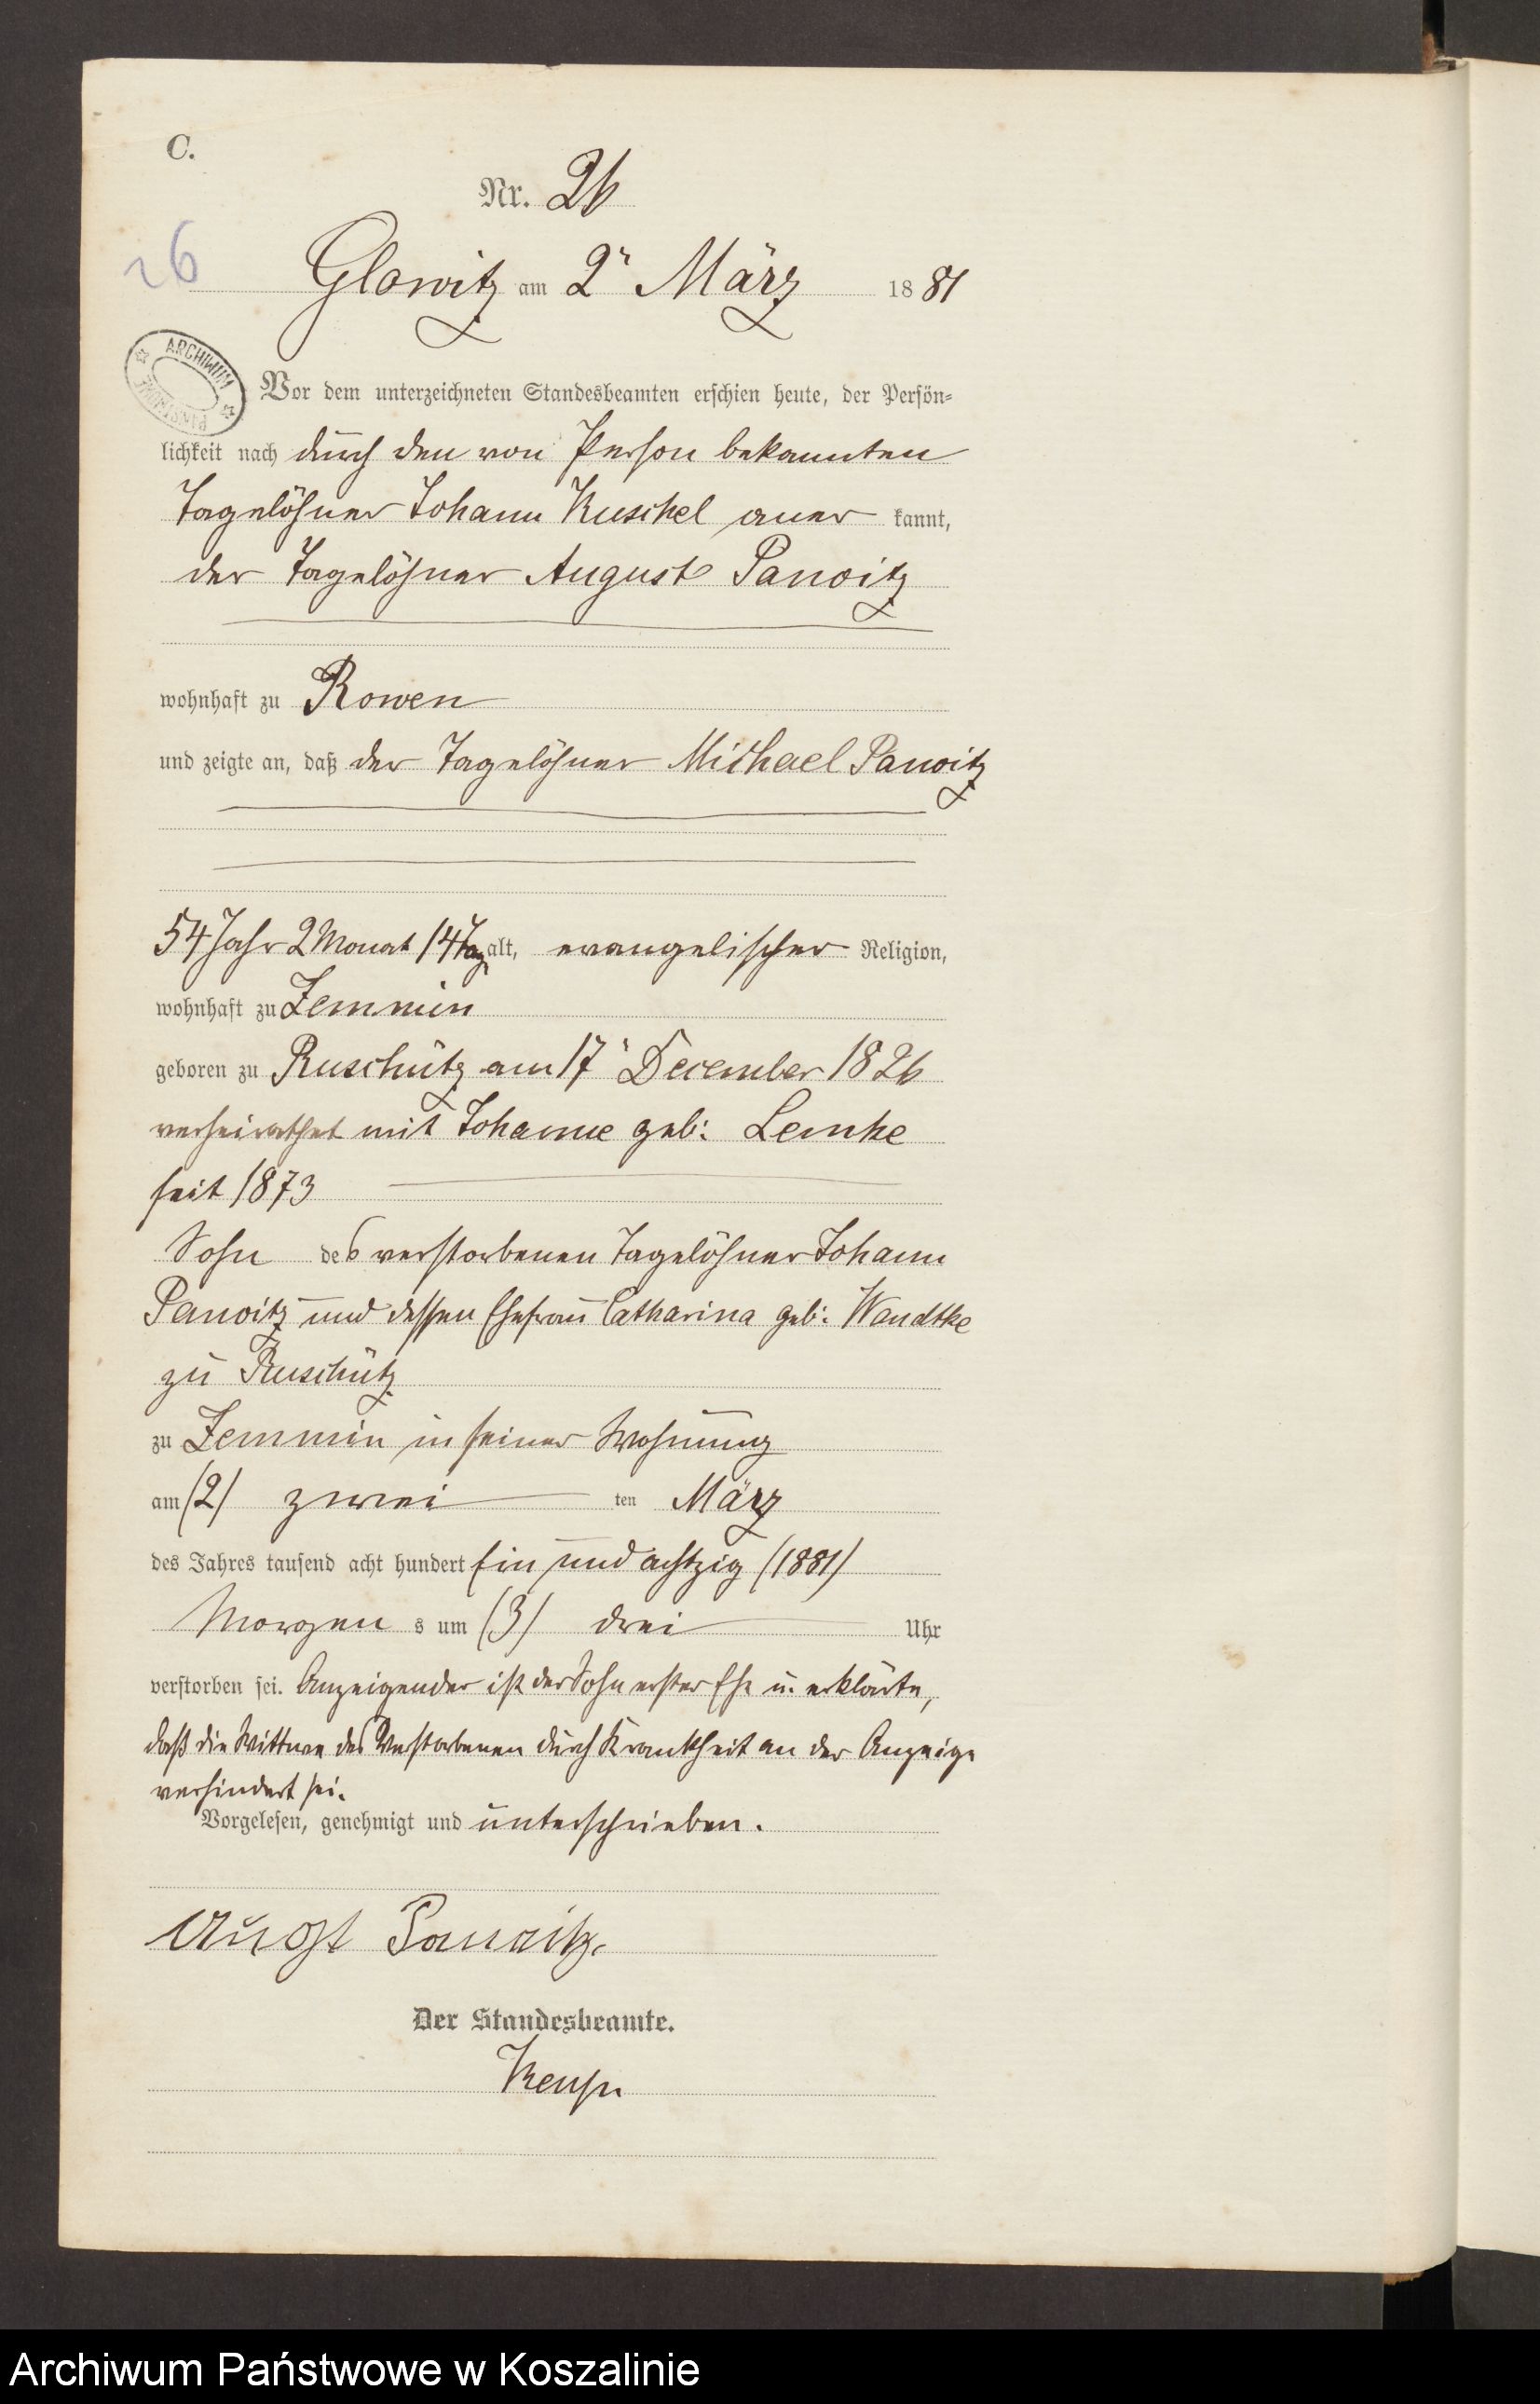 C.
Nr. 26
26
Glowitz am 2ᵗ März 1881
ARCHIWUM PAŃSTWOWE
Vor dem unterzeichneten Standesbeamten erschien heute, der Persön-
lichkeit nach durch den von Person bekannten
Tagelöhner Johann Kuschel aner kannt,
der Tagelöhner August Panoitz
wohnhaft zu Rowen
und zeigte an, daß der Tagelöhner Michael Panoitz
54 Jahr 2 Monat 14 Tag alt, evangelischer Religion,
wohnhaft zu Zemmin
geboren zu Ruschütz am 17ᵗ December 1826
verheirathet mit Johanne geb: Lemke
seit 1873
Sohn des verstorbenen Tagelöhner Johann
Panoitz und dessen Ehefrau Catharina geb: Wandtke
zu Ruschütz
zu Zemmin in seiner Wohnung
am (2) zwei ten März
des Jahres tausend acht hundert Ein und achtzig (1881)
Morgen s um (3) drei Uhr
verstorben sei. Anzeigender ist der Sohn erster Ehe u. erklärte,
daß die Wittwe des Verstorbenen durch Krankheit an der Anzeige
verhindert sei.
Vorgelesen, genehmigt und unterschrieben.
Augst Panoitz.
Der Standesbeamte.
Archiwum Państwowe w Koszalinie